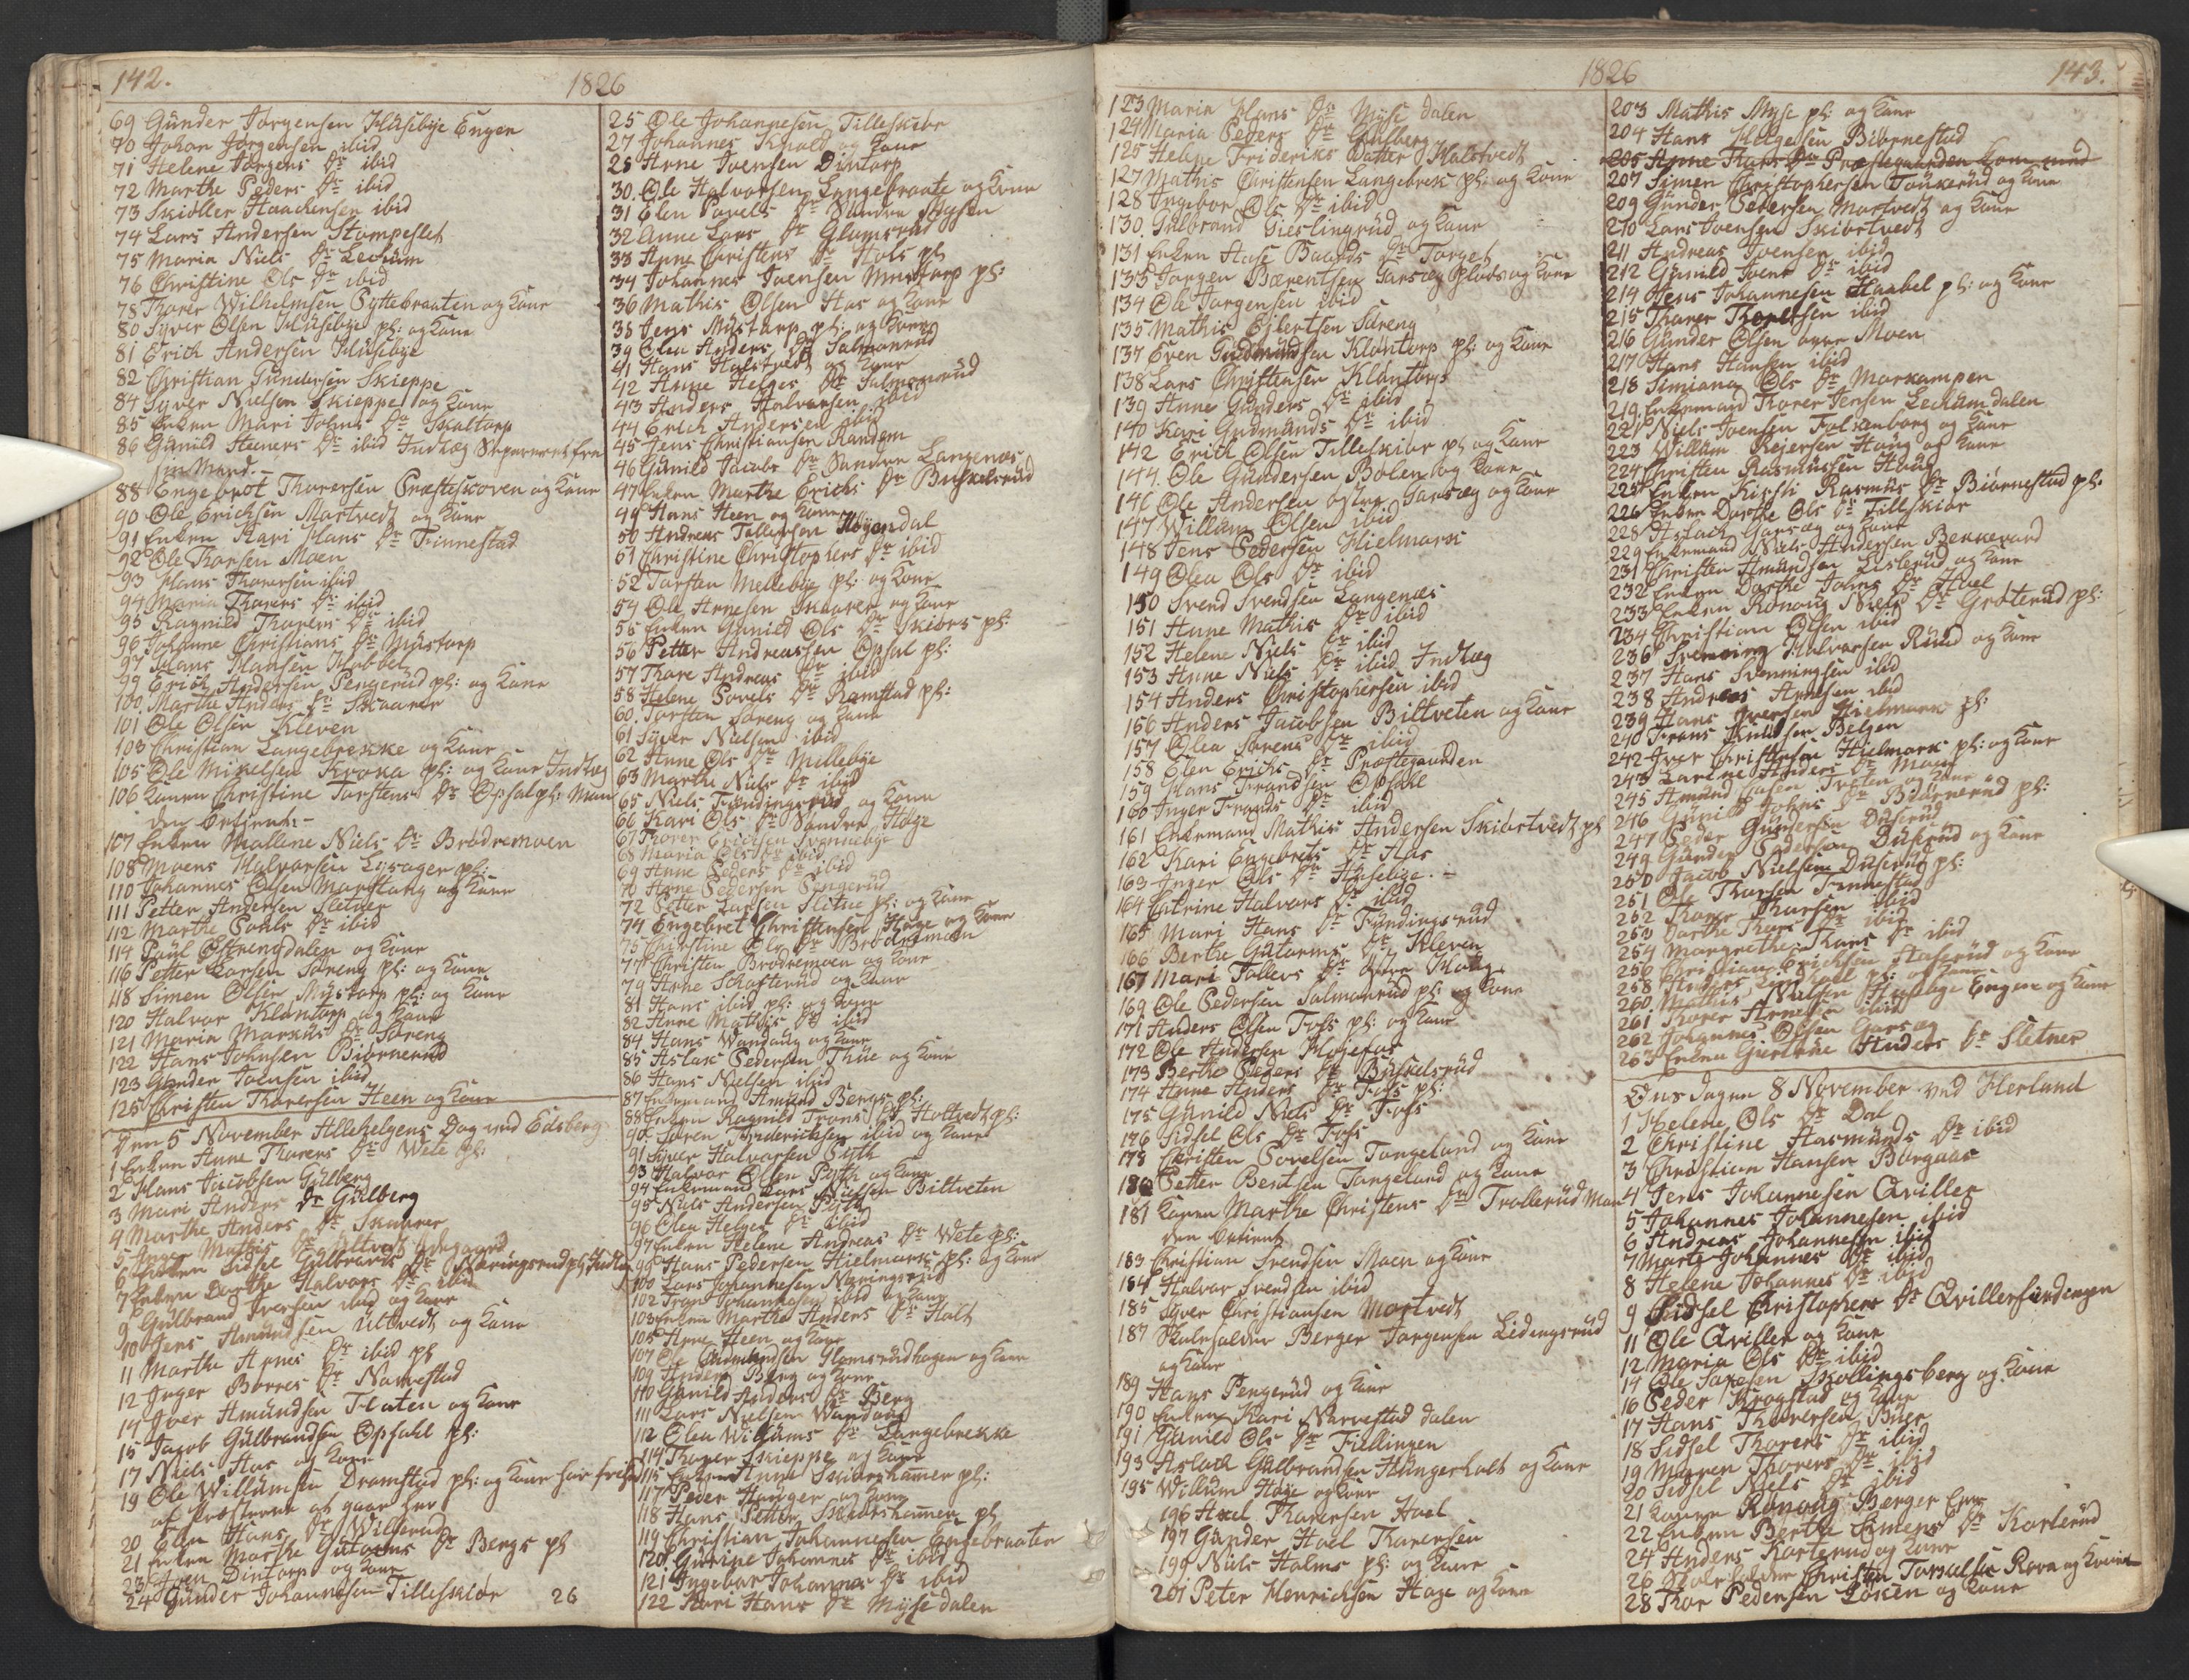 142.
1826
69 Gunder Jørgensen Husebye Engen
70 Johan Jørgensen ibid
71 Helene Jørgens Dr ibid
72 Marthe Peders Dr ibid
73 Skioller Haachensen ibid
74 Lars Andersen Stampeslet
75 Maria Niels Dr Lechum
76 Christine Ols Dr ibid
78 Thorer Wilhelmsen Pyttebraaten og Kone
80 Syver Olsen Huseby pl: og Kone
81 Erich Andersen Husebye
82 Christian Gundersen Skieppe
84 Syver Nielsen Skieppe og Kone
85 Enken Mari Johns Dr Skaltorp
86 Gunild Steeners Dr ibid Indlæg Separeret fra
sin Mand.
88 Engebret Thorersen Præsteskoven og Kone
90 Ole Erichsen Martvedt og Kone
91 Enken Kari Hans Dr Finnestad
92 Ole Thorsen Moen
93 Hans Thorersen ibid
94 Maria Thorers Dr ibid
95 Ragnild Thorers Dr ibid
96 Johanne Christians Dr Mustorp
97 Hans Hansen Habbel
99 Erich Andersen Pengerud pl: og Kone
100 Marthe Anders Dr Skaarer
101 Ole Olsen Kleven
103 Christian Langebrekke og Kone
105 Ole Mikelsen Kroka pl: og Kone Indlæg
106 Konen Christine Torstens Dr Opsal pl: Man
den Betient -
107 Enken Mallene Niels Dr Brødremoen
108 Moens Halvorsen Lysager pl:
110 Johannes Olsen og Kone
111 Petter Andersen Sletner
112 Marthe Povls Dr ibid
114 Paul Østrengdalen og Kone
116 Petter Larsen Søreng pl: og Kone
118 Simen Olsen Mystorp pl: og Kone
120 Halvor Klantorp og Kone
121 Maria Markus Dr Søreng
122 Hans Johnsen Biørnerud
123 Gunder Joensen ibid
125 Christen Thorersen Heen og Kone
Den 5 November Allehelgens Dag ved Eidsberg
1 Enken Anne Thorers Dr Wete pl:
2 Hans Jacobsen Gulberg
3 Mari Anders Dr Gulberg
4 Marthe Anders Dr Skaarer
5 Inger Mathis Dr Ultvedt Ødegaard
6 Enken Sidsel Gulbrands Dr Næringsrud pl: Indlæg
7 Enken Dorthe Halvors Dr ibid
9 Gulbrand Iversen ibid og Kone
10 Jens Amundsen Ultvedt og Kone
11 Marthe Arnes Dr ibid pl
12 Inger Børres Dr Narvestad
14 Iver Amundsen Flaten og Kone
15 Jacob Gulbrandsen Opsahl pl:
17 Niels Has og Kone
19 Ole Willumsen Dramstad pl: og Kone har frihed
af Præsterne at gaae her
20 Elen Hans Dr Wilberud
21 Enken Marthe Gutorms Dr Bergs pl
23 Iven Dintorp og Kone
24 Gunder Johannesen Tilleskiør 26
25 Ole Johannesen Tilleskiør
27 Johannes og Kone
28 Arne Joensen Dintorp
30. Ole Halvorsen Langebraate og Kone
31 Elen Povels Dr Søndre Mysen
32 Anne Lars Dr Glomsrud
33 Anne Christens Dr Hols pl
34 Johannes Joensen Mustorp pl:
36 Mathis Olsen Has og Kone
38 Jens Mustorp pl: og Kone
39 Olea Anders Dr Salmonrud
41 Hans Halstvedt og Kone
42 Anne Helges Dr Salmonrud
43 Anders Halvorsen ibid
44 Erich Andersen ibid
45 Jens Christiansen Randem
46 Gunild Jacobs Dr Søndre Langenæs
47 Enken Marthe Erichs Dr Buskelsrud
49 Hans Heen og Kone
50 Andreas Tollefsen Høyendal
51 Christine Christophers Dr ibid
52 Torsten Mellebye pl: og Kone
54 Ole Arnesen Skaarer og Kone
55 Enken Gunild Ols Dr Skiørs pl:
56 Petter Andreassen Opsal pl:
57 Thore Andreas Dr ibid
58 Helene Povels Dr Ramstad pl:
60. Torsten Søreng og Kone
61 Syver Nielsen ibid
62 Anne Ols Dr Millebye
63 Marthe Niels Dr ibid
65 Niels Fundingsrud og Kone
66 Kari Ols Dr Søndre Høye
67 Thorer Erichsen Svennebye
68 Maria Ols Dr ibid
69 Anne Peders Dr ibid
70 Arne Pedersen Pengerud
72 Petter Larsen Slitue pl: og Kone
74 Engebret Christensen Høye og Kone
75 Christine Ols Dr Brødremoen
77 Christen Brødremoen og Kone
79 Arne Schøfterud og Kone
81 Hans ibid pl: og Kone
82 Anne Mathis Dr ibid
84 Hans Wandaug og Kone
85 Aslak Pedersen Thue og Kone
86 Hans Nielsen ibid
87 Enkemand Amund Bergs pl:
88 Enken Ragnild Frans Dr Holtvedt pl:
90 Søren Frederichsen ibid og Kone
91 Syver Halvorsen Pyth
93 Halvor Olsen Pyth og Kone
94 Enkemand Lars Nielsen Biltveten
95 Niels Andersen Pyth
96 Olea Helges Dr ibid
97 Enken Helene Andreas Dr Wete pl:
99 Hans Pedersen Hielmark pl: og Kone
100 Lars Johannesen Næringsrud
102 Iver Johannesen ibid og Kone
103 Enken Marthe Anders Dr Holt
105 Arne Heen og Kone
107 Ole Gudmundsen Glomsrudhagen og Kone
109 Anders Berg og Kone
110 Gunild Anders Dr Berg
111 Lars Nielsen Wandaug
112 Olea Willums Dr Langebrekke
114 Thorer Skieppe og Kone
115 Enken Anne Skiørshamer pl:
117 Peder Hauger og Kone
118 Hans Petter Skiørshamer pl
119 Christian Johannesen Engebraaten
120 Gurine Johannes Dr ibid
121 Ingebor Johannes Dr ibid
122 Kari Hans Dr Myse dalen
1826
143.
123 Maria Hans Dr Myse dalen
124 Maria Peders Dr Gulberg
125 Helene Frideriks Datter Halstvedt
127 Mathis Christensen Langebrek pl: og Kone
128 Ingebor Ols Dr ibid
130. Gulbrand Gieslingrud og Kone
131 Enken Aase Baards Dr Torget
133 Jørgen Bærentsen Garsæg Plads og Kone
134 Ole Jørgensen ibid
135 Mathis Ejlertsen Søreng
137 Even Gudmundsen Klantorp pl: og Kone
138 Lars Christensen Klantorp
139 Anne Gunders Dr ibid
140 Kari Gudmunds Dr ibid
142 Erich Olsen Tilleskiør pl og Kone
144. Ole Gundersen Bølen og Kone
146 Ole Andersen østre Garsæg og Kone
147 Willum Olsen ibid
148 Jens Pedersen Hielmark
149 Olea Ols Dr ibid
150 Svend Svendsen Langenæs
151 Anne Mathis Dr ibid
152 Helene Niels Dr ibid
153 Anne Niels Dr ibid Indlæg
154 Anders Christophersen ibid
156 Anders Jacobsen Biltveten og Kone
157 Olea Sørens Dr ibid
158 Elen Erichs Dr Præstegaarden
159 Hans Frandsen Opsahl
160 Inger Frands Dr ibid
161 Enkemand Mathis Andersen Skiørtvedt pl
162 Kari Engebrets Dr Has
163 Inger Ols Dr Husebye. -
164 Catrine Halvors Dr ibid
165 Mari Hans Dr Fundingsrud
166 Berthe Gutorms Dr Kleven
167 Mari Tollevs Dr Moug
169 Ole Pedersen Salmonrud pl: og Kone
171 Anders Olsen Foss pl: og Kone
172 Ole Andersen
173 Berthe Peders Dr Buskelsrud
174 Anne Anders Dr Foss pl:
175 Gunild Niels Dr Foss
176 Sidsel Ols Dr Foss
178 Christen Povelsen Tangelund og Kone
180 Petter Bentsen Tangelund og Kone
181 Konen Marthe Christens Dr Trollerud Man
den betient
183 Christian Svendsen Moen og Kone
184 Halvor Svendsen ibid
185 Syver Christiansen Mortvedt
187 Skoleholder Berger Jørgensen Lidingsrud
og Kone
189 Hans Pengerud og Kone
190 Enken Kari Narvestad dalen
191 Gunild Ols Dr Fiellingen
193 Aslach Gulbrandsen Hungerholt og Kone
195 Willum Høye og Kone
196 Axel Thorersen Hoel
197 Gunder Hoel Thorersen
199 Niels Holms pl: og Kone
201 Peter Henrichsen Høye og Kone
203 Mathis Myse pl: og Kone
204 Hans Helgesen Biørnestad
205 Anne Thors Dr Præstegaarden kom med
207 Simen Christophersen Toukerud og Kone
209 Gunder Pedersen Martvedt og Kone
210 Lars Joensen Skiørtvedt
211 Andreas Joensen ibid
212 Gunild Joens Dr ibid
214 Jens Johannesen Haabel pl: og Kone
215 Thorer Thorersen ibid
216 Gunder Olsen øvre Moen
217 Hans Hansen ibid
218 Simiana Ols Dr Morkampen
219. Enkemand Thorer Jensen Lechumdalen
221 Niels Joensen Folkenborg og Kone
223 Willum Rejersen Haug og Kone
224 Christen Rasmussen Haug
225 Enken Kirsti Rasmus Dr Biørnestad pl.
226 Enken Dorthe Ols Dr Tilleskiør
228 Aslach Garsæg og Kone
229 Enkemand Niels Andersen Bekkevard
231 Christen Amundsen Lislerud og Kone
232 Enken Dorthe Johns Dr Hoel
233 Enken Ronoug Niels Dr Groterud pl:
234 Christian Olsen ibid
236 Svenning Halvorsen Ruud og Kone
237 Hans Svenningsen ibid
238 Andreas Arnesen ibid
239 Hans Iversen Hielmark pl:
240 Frans Knudsen Belgen
242 Iver Christensen Hielmark pl: og Kone
243 Karine Anders Dr Moen
245 Amund og Kone
246 Gunild Johns Dr Biørnerud pl:
247 Peder Gundersen Duserud
249 Gunder Pedersen Duserud og Kone
250 Jacob Nielsen Duserud pl:
251 Ole Thorsen Finnestad
252 Thorer Thorsen ibid
253 Dorthe Thors Dr ibid
254 Margrethe Thors Dr ibid
256 Christian Erichsen Haserud og Kone
258 Anders pl: og Kone
260. Mathis Nielsen Husebye Engen og Kone
261 Thorer Arnesen ibid
262 Johannes Olsen Garsæg
263 Enken Giertrue Anders Dr Sletner
Onsdagen 8 November ved Herland
1 Helene Ols Dr Dal
2 Christine Aasmunds Dr ibid
3 Christian Hansen Borgaas
4 Jens Johannesen Qviller
5 Johannes Johannesen ibid
6 Andreas Johannesen ibid
7 Marte Johannes Dr ibid
8 Helene Johannes Dr ibid
9 Sidsel Christophers Dr Qvillersundengen
11 Ole Qviller og Kone
12 Maria Ols Dr ibid
14 Ole Saxesen Skollingsberg og Kone
16 Peder Krogstad og Kone
17 Hans Thorersen Buer
18 Sidsel Thorers Dr ibid
19 Marren Thorers Dr ibid
20 Sidsel Niels Dr ibid
21 Konen Ronoug Berger
22 Enken Berthe Simens Dr Karterud
24 Anders Karterud og Kone
26 Skoleholder Christen Torkelsen Rova og Kone
28 Thor Pedersen Løken og Kone